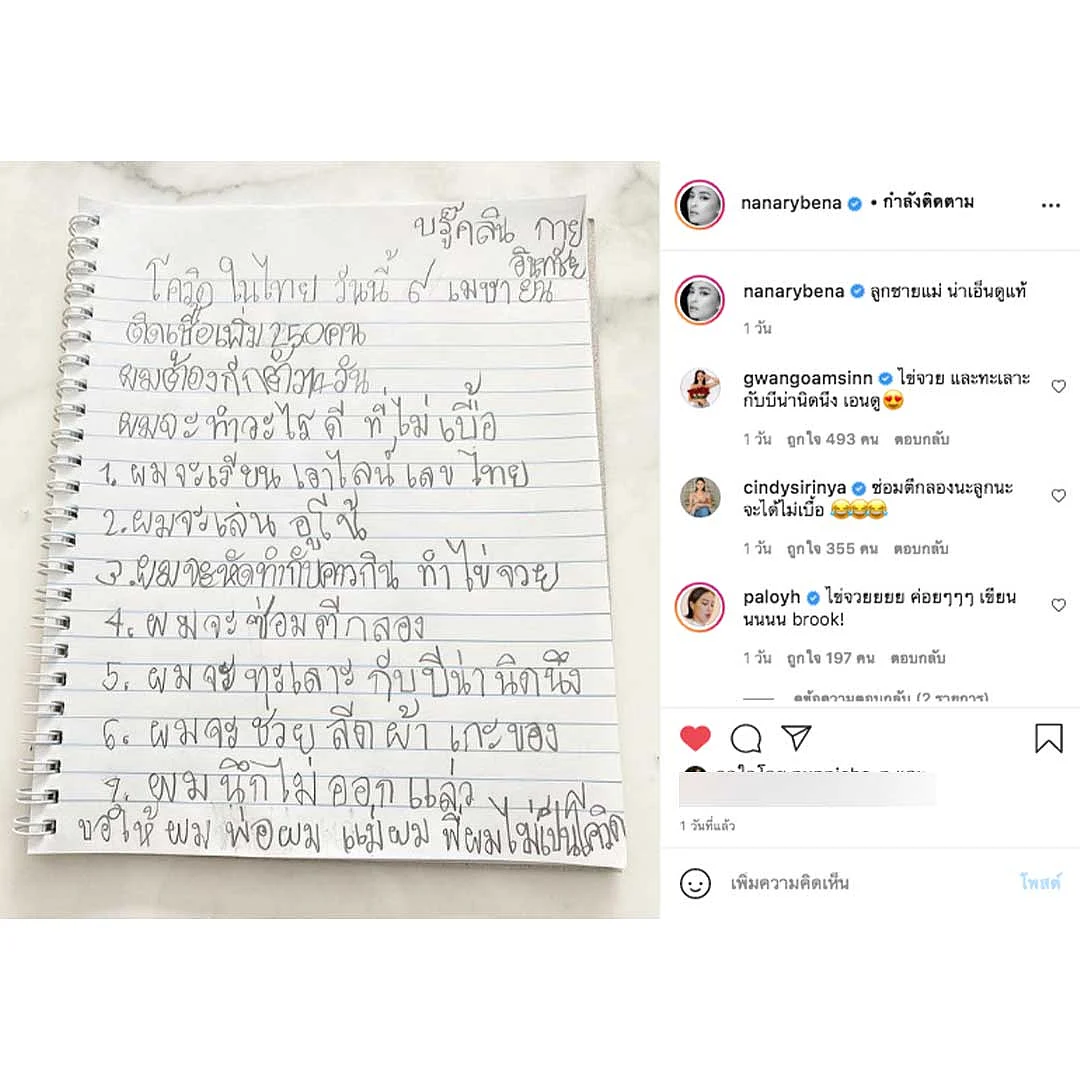 บรู๊คลิน กาย
อินทชัย
โควิด ในไทย วันนี้ ๙ เมษายน
ติดเชื้อเพิ่ม 250คน
ผมต้อง วัน
ผมจะ ทำวะไร ดี ที่ ไม่ เบื่อ
1. ผมจะเรียน เอาไลน์ เลข ไทย
2. ผมจะเล่น อูโน้
3. ผมจะหัดทำกับคาวกิน ทำ ไข่ จวย
4. ผมจะ ซ่อม ตี กลอง
5. ผมจะ ทะเลาะ กับ บีน่า นิดนึง
6. ผมจะ ช่วย ลีด ผ้า เกะ ของ
7. ผม นึก ไม่ ออก แล่ว
ขอให้ ผม พ่อผม แม่ผม พี่ผม ไม่เป็นโควิด
nanarybena • กำลังติดตาม
nanarybena ลูกชายแม่ น่าเอ็นดูแท้
1 วัน
gwangoamsinn ไข่จวย และทะเลาะ
กับบีน่านิดนึง เอนดู😍
1 วัน ถูกใจ 493 คน ตอบกลับ
cindysirinya ซ่อมตีกลองนะลูกนะ
จะได้ไม่เบื้อ 😂😂😂
1 วัน ถูกใจ 355 คน ตอบกลับ
paloyh ไข่จวยยยย ค่อยๆๆๆ เขียน
นนนน brook!
1 วัน ถูกใจ 197 คน ตอบกลับ
ดูข้อความตอบกลับ (2 รายการ)
1 วันที่แล้ว
เพิ่มความคิดเห็น โพสต์